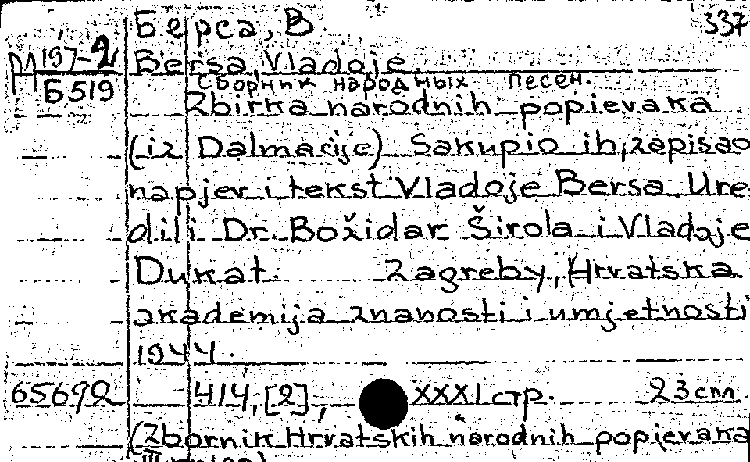 Берса, В. 337
М 197-2 Bersa, Vladoje.
Б 519 Сборник народных песен.
Zbirka narodnih popievaka
(iz Dalmacije) Sakupio ih, zapisao
napjev i tekst Vladoje Bersa. Ure
dili Dr. Božidar Širola i Vladoje
Dukat. Zagreby, Hrvatska
akademija znanosti i umjetnosti
1944.
65692 414, [2], XXXI стр. 23 см.
(Zbornik Hrvatskih narodnih popievaka